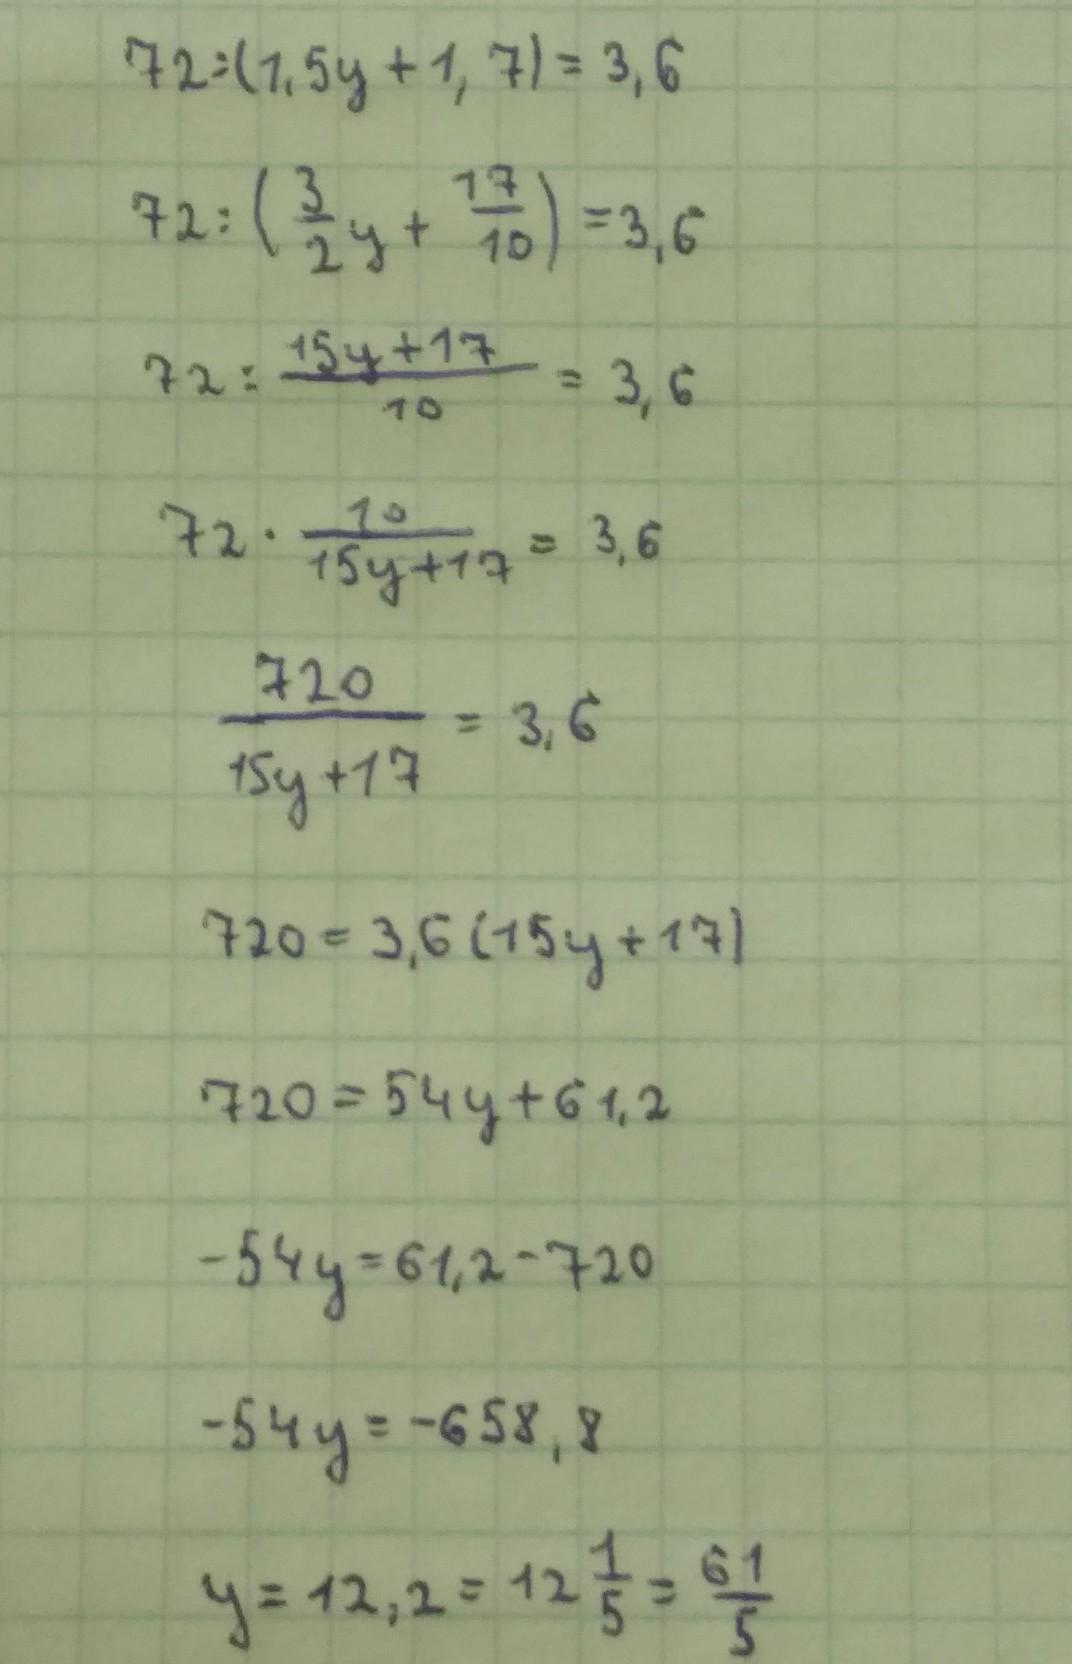 72:(1,5y+1,7)=3,6
72:(3/2y+17/10)=3,6
72:15y+17/10=3,6
72·10/15y+17=3,6
720/15y+17=3,6
720=3,6(15y+17)
720=54y+61,2
-54y=61,2-720
-54y=-658,8
y=12,2=12 1/5=61/5